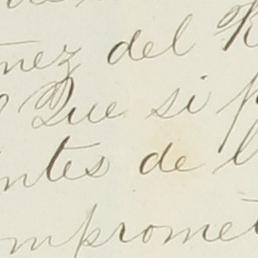 nez del R
Que si p
ntes de l
ompromet